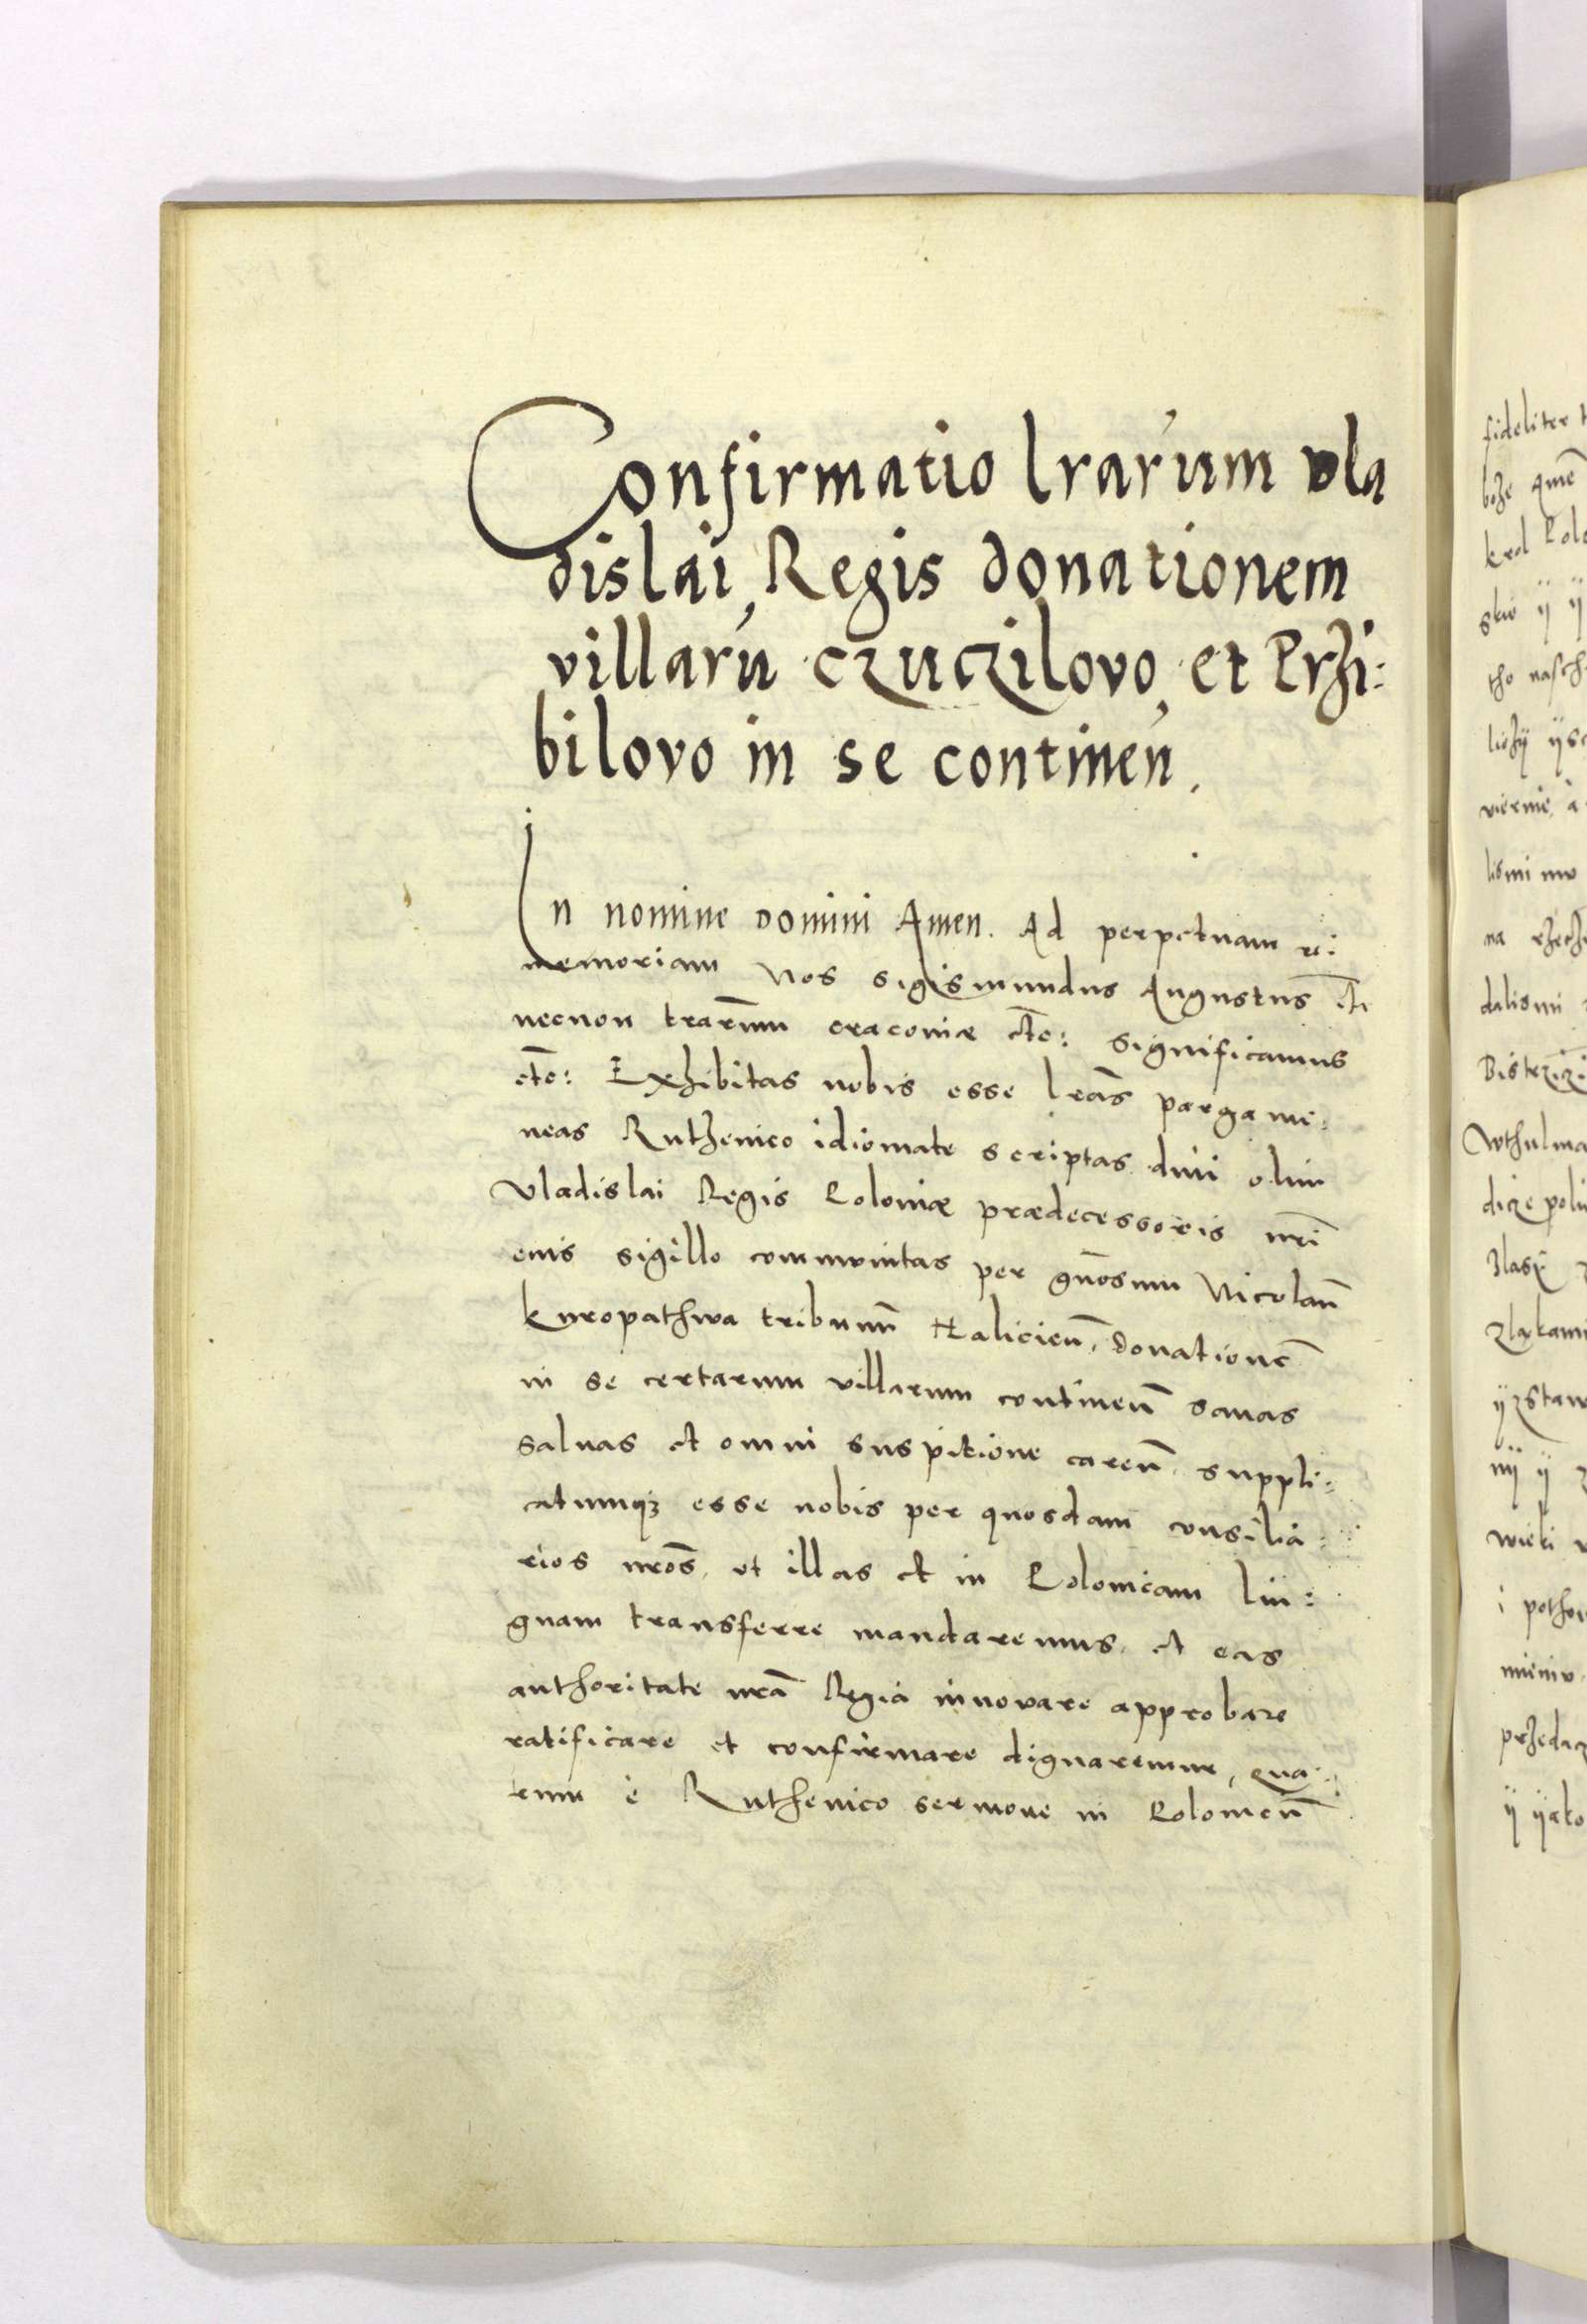 Confirmatio lrarum vla
dislai Regis donationem
villarū czuczilovo et Przi:
bilovo in se continen̄.
In nomine Domini Amen. Ad perpetuam rei:
memoriam Nos Sigismundus Augustus etc
necnon trarum cracoviæ etc: Significamus
etc: Exhibitas nobis esse lrās pargame:
neas Ruthenico idiomate scriptas divi olim
Vladislai Regis Poloniæ prædecessoris nrī
eius sigillo communitas per gn̄osum Nicolaū
Kuropathwa tribunū Halicien̄, donationē
in se certarum villarum continen̄ sanas
salvas et omni suspitione caren̄, suppli:
catumqꝫ esse nobis per quosdam consilia:
rios nrōs, ut illas et in Polonicam lin:
guam transferre mandaremus, et eas
authoritate nrā Regia innovare approbare
ratificare et confirmare dignaremur, qua:
rum è Ruthenico sermone in Polonicū
fideliter
boze amē
krol Polo
skiv ÿ ÿ
tho nasch
liczÿ ÿsc
viernie, a
lismi mv
na rzecz
dalismi
Bistrzizi
Wthulma
dicze poli
zlakami
ÿzstaw
nÿ ÿ
wieki
i pothom
mieniv
przedacz
ÿ ÿako